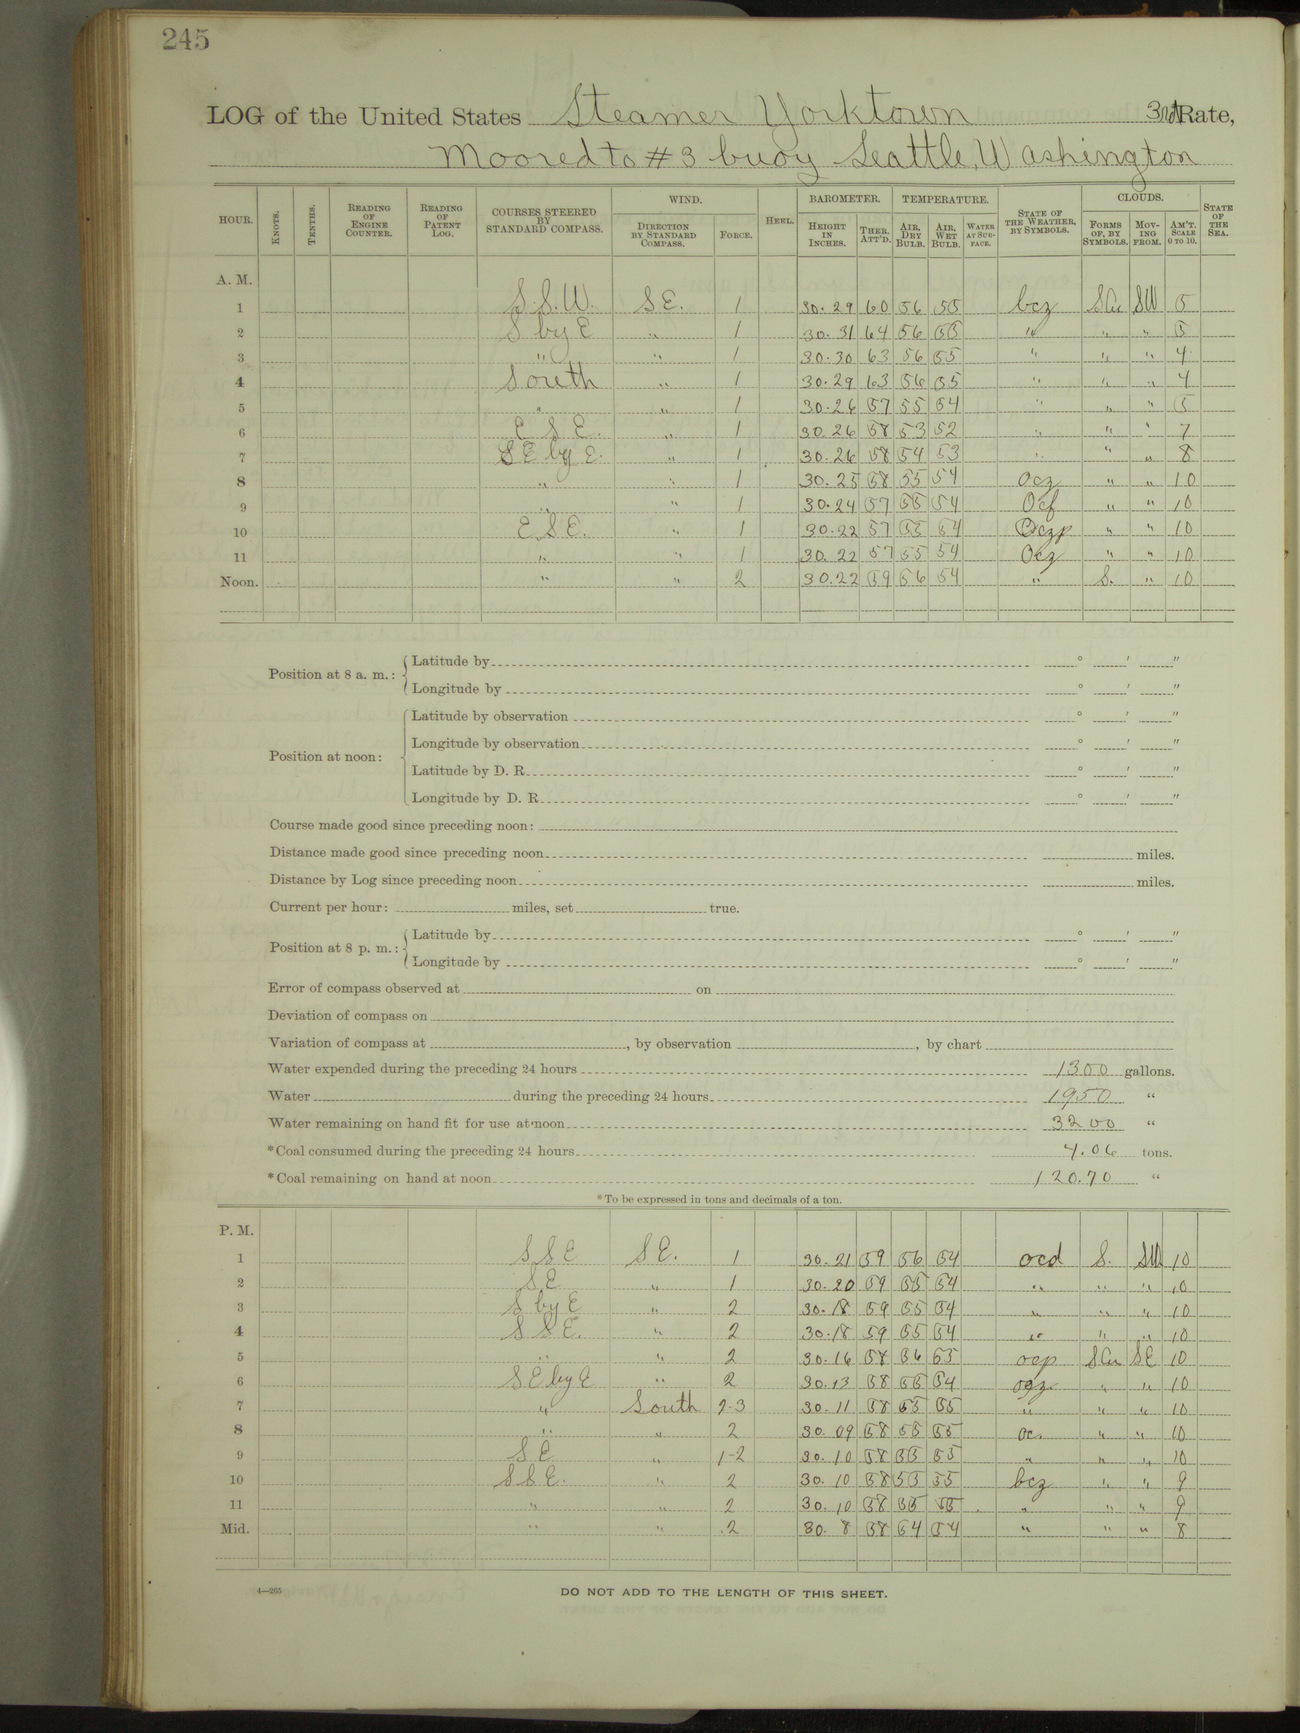 245
LOG of the United States Steamer Yorktown 3rd Rate,
Moored to #3 buoy Seattle, Washington
HOUR. KNOTS. TENTHS. READING OF ENGINE COUNTER. READING OF PATENT LOG. COURSES STEERED BY STANDARD COMPASS. WIND. DIRECTION BY STANDARD COMPASS. FORCE. HEEL. BAROMETER. HEIGHT IN INCHES. THER. ATT'D. TEMPERATURE. AIR, DRY BULB. AIR, WET BULB. WATER AT SURFACE. STATE OF THE WEATHER, BY SYMBOLS. CLOUDS. FORMS OF, BY SYMBOLS. MOVING FROM. AM'T. SCALE 0 TO 10. STATE OF THE SEA.
A. M.
1 S.S.W. SE. 1 30.29 60 56 55 bcz SCu SW 5
2 S by E " 1 30.31 64 56 55 " " " 5
3 " " 1 30.30 63 56 55 " " " 4
4 South " 1 30.29 63 56 55 " " " 4
5 " " 1 30.26 57 55 54 " " " 5
6 E S E. " 1 30.26 58 53 52 " " " 7
7 SE by E. " 1 30.26 58 54 53 " " " 8
8 " " 1 30.25 58 55 54 Ocz " " 10
9 " " 1 30.24 57 55 54 Ocf " " 10
10 E S E. " 1 30.22 57 55 54 Oczp " " 10
11 " " 1 30.22 57 55 54 Ocz " " 10
Noon. " " 2 30.22 59 56 54 " S. " 10
Position at 8 a. m.: Latitude by ° ′ ″
Longitude by ° ′ ″
Position at noon: Latitude by observation ° ′ ″
Longitude by observation ° ′ ″
Latitude by D. R. ° ′ ″
Longitude by D. R. ° ′ ″
Course made good since preceding noon:
Distance made good since preceding noon miles.
Distance by Log since preceding noon miles.
Current per hour: miles, set true.
Position at 8 p. m.: Latitude by ° ′ ″
Longitude by ° ′ ″
Error of compass observed at on
Deviation of compass on
Variation of compass at , by observation , by chart
Water expended during the preceding 24 hours 1300 gallons.
Water during the preceding 24 hours 1950 "
Water remaining on hand fit for use at noon 3200 "
*Coal consumed during the preceding 24 hours 4.06 tons.
*Coal remaining on hand at noon 120.70 "
*To be expressed in tons and decimals of a ton.
P. M.
1 S S E SE. 1 30.21 59 56 54 ocd S. SW 10
2 SE " 1 30.20 59 55 54 " " " 10
3 S by E " 2 30.18 59 55 54 " " " 10
4 S S E. " 2 30.18 59 55 54 " " " 10
5 " " 2 30.16 58 56 55 ocp SCu SE 10
6 SE by E " 2 30.13 58 55 54 ocz " " 10
7 " South 2-3 30.11 58 55 55 " " " 10
8 " " 2 30.09 58 55 55 oc. " " 10
9 SE " 1-2 30.10 58 55 55 " " " 10
10 S S E. " 2 30.10 58 55 55 bcz " " 9
11 " " 2 30.10 58 55 55 " " " 9
Mid. " " 2 30.8 58 54 54 " " " 8
4—265
DO NOT ADD TO THE LENGTH OF THIS SHEET.